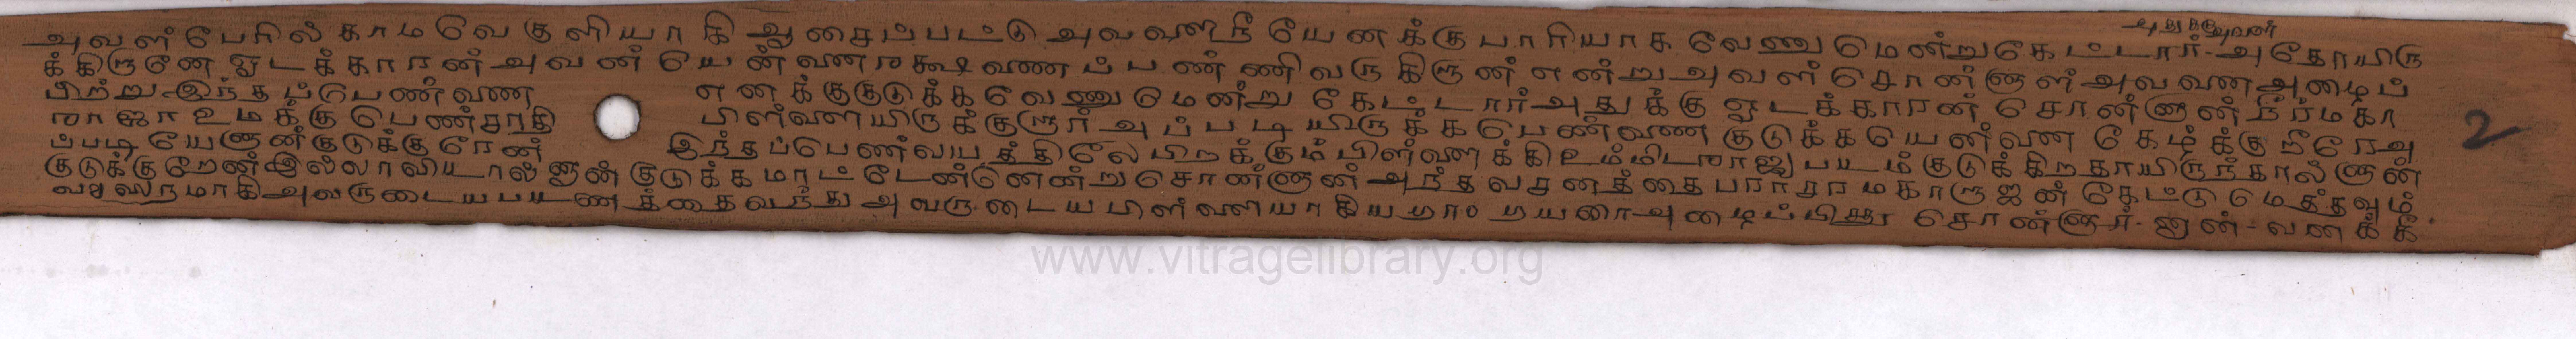 அதுக்கு அவள்
அவள் பேரில் காமவேகுளியாகி ஆசைப்பட்டு அவளை நீ யேனக்கு பாரியாக வேணுமென்று கேட்டார்.
க்கிறானே ஓடக்காரன் அவன் யென்னை ரக்ஷணை பண்ணிவருகிறான் என்று அவள் சொன்னாள் அவனை அழைப்
பிற்று இந்தப்பெண்ணை எனக்கு குடுக்க வேணுமென்று கேட்டார் அதுக்கு ஓடக்காரன் சொன்னான் நீர் மகா
ராஜா உமக்கு பெண்சாதி பிள்ளையிருக்குறார் அப்படியிருக்க பெண்ணை குடுக்க யென்னை கேழ்க்கு நீரேஅ
ப்படி யேனான் குடுக்குரேன் இந்தப்பெண் வயத்திலே பிறக்கும் பிள்ளைக்கி உம்மிட ராஜபயம் குடுக்கிறதாயிருந்தால் னான்
குடுக்குறேன் இல்லாவியால் னான் குடுக்க மாட்டேன்னென்று சொன்னான் அந்த வசனத்தை பராசரமகாருஷி கேட்டு மெத்தவும்
அவருடைய பயணத்தை வந்து அவருடைய பிள்ளையாகிய அழைப்பிச்சு சொன்னார்- னான்-
2
www.vitragelibrary.org